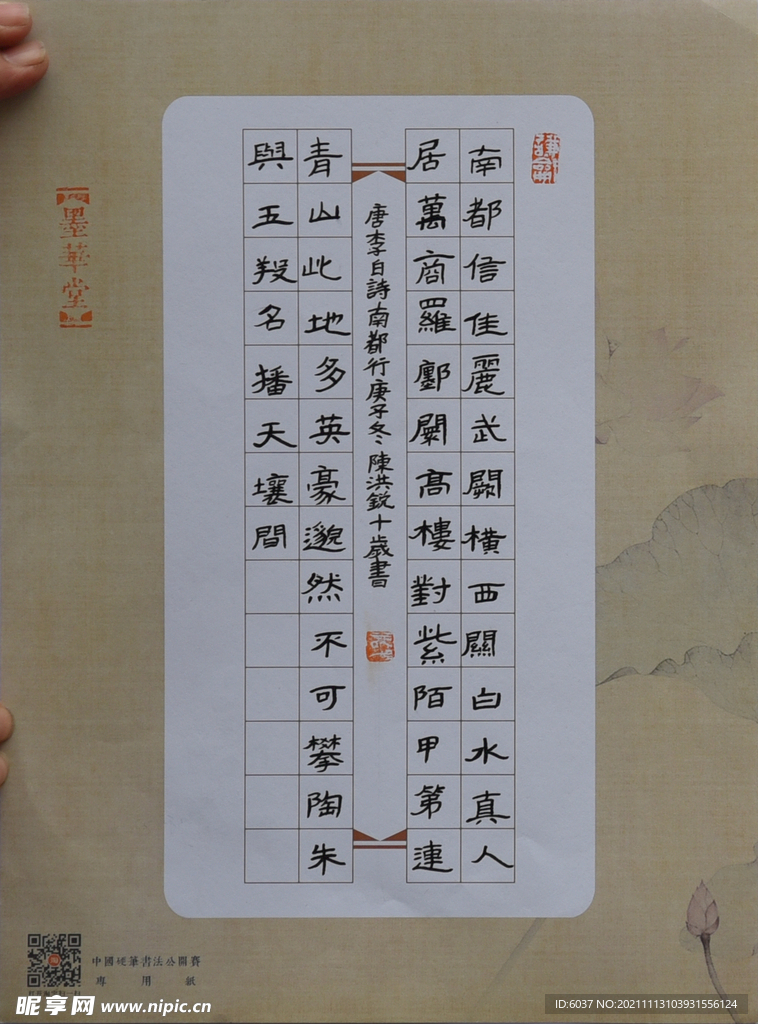 南都信佳麗武闕橫西關白水真人
居萬商羅鄽闤高樓對紫陌甲第連
唐李白詩南都行庚子冬陳洪銳十歲書
青山此地多英豪邈然不可攀陶朱
與五羖名播天壤間
墨華堂
中國硬筆書法公開賽
專用紙
昵享网 www.nipic.cn
ID:6037 NO:20211113103931556124